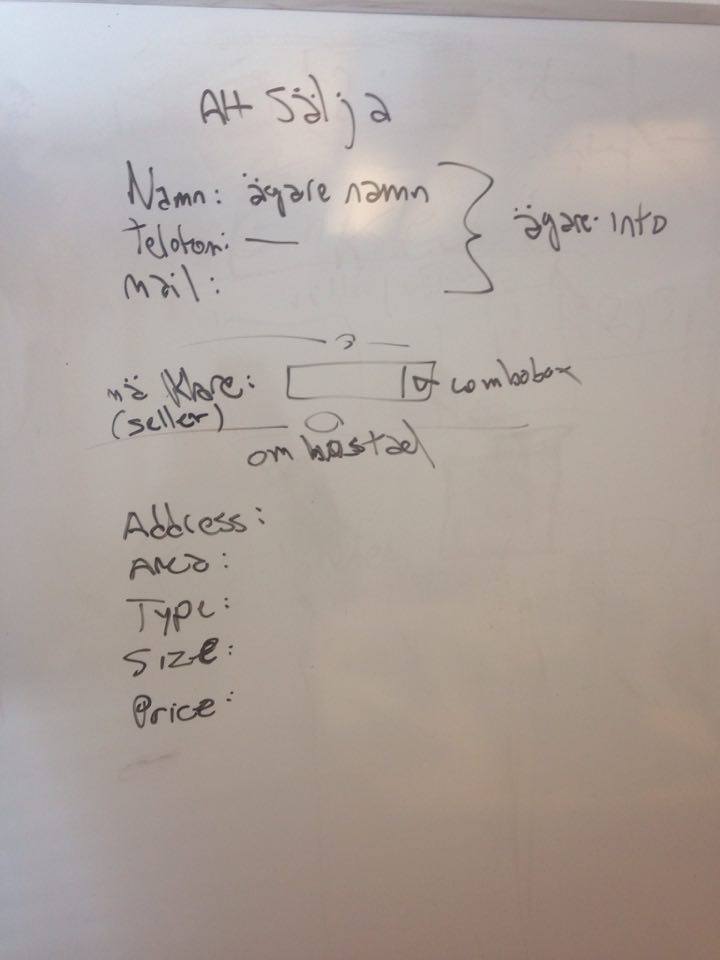 Att Sälja
Namn: ägare namn
Telefon: —
mail:
ägare info
mäklare: combobox
(seller)
om bostad
Address:
Area:
Type:
Size:
Price: